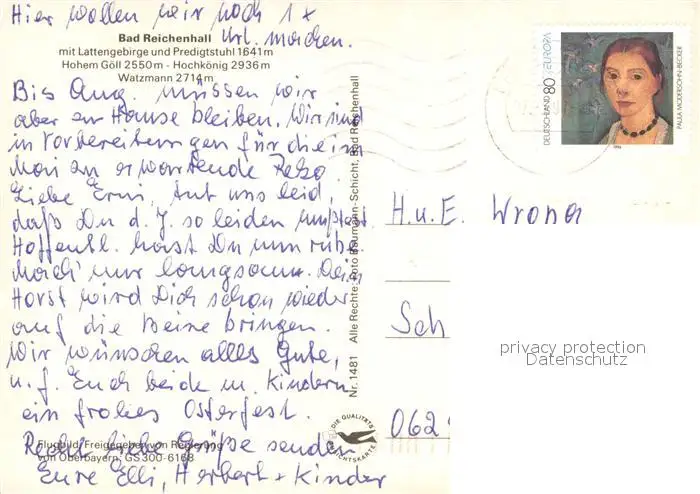 Hier wollen wir noch 1 x
Url. machen.
Bad Reichenhall
mit Lattengebirge und Predigtstuhl 1641 m
Hohem Göll 2550 m - Hochkönig 2936 m
Watzmann 2714 m
Bis Aug. müssen wir
aber zu Hause bleiben. Wir sind
in Vorbereitungen für die im
Mai zu erwartende
Liebe Erni, tut uns leid,
daß Du d. J. so leiden mußtest.
Hoffentl. hast Du nun Ruhe.
Mach' nur langsam. Dein
Horst wird Dich schon wieder
auf die Beine bringen.
Wir wünschen alles Gute,
u. f. Euch beide u. Kindern
ein frohes Osterfest.
Recht liebe Grüße senden
Eure Elli, Herbert + Kinder
Flugbild: Freigegeben von Regierung
von Oberbayern: GS 300-6168
Nr. 1481 Alle Rechte: Foto Baumann-Schicht, Bad Reichenhall
DIE QUALITÄTS
DEUTSCHLAND 80 EUROPA
PAULA MODERSOHN-BECKER
H. u. E. Wrona
Sch
062
privacy protection
Datenschutz